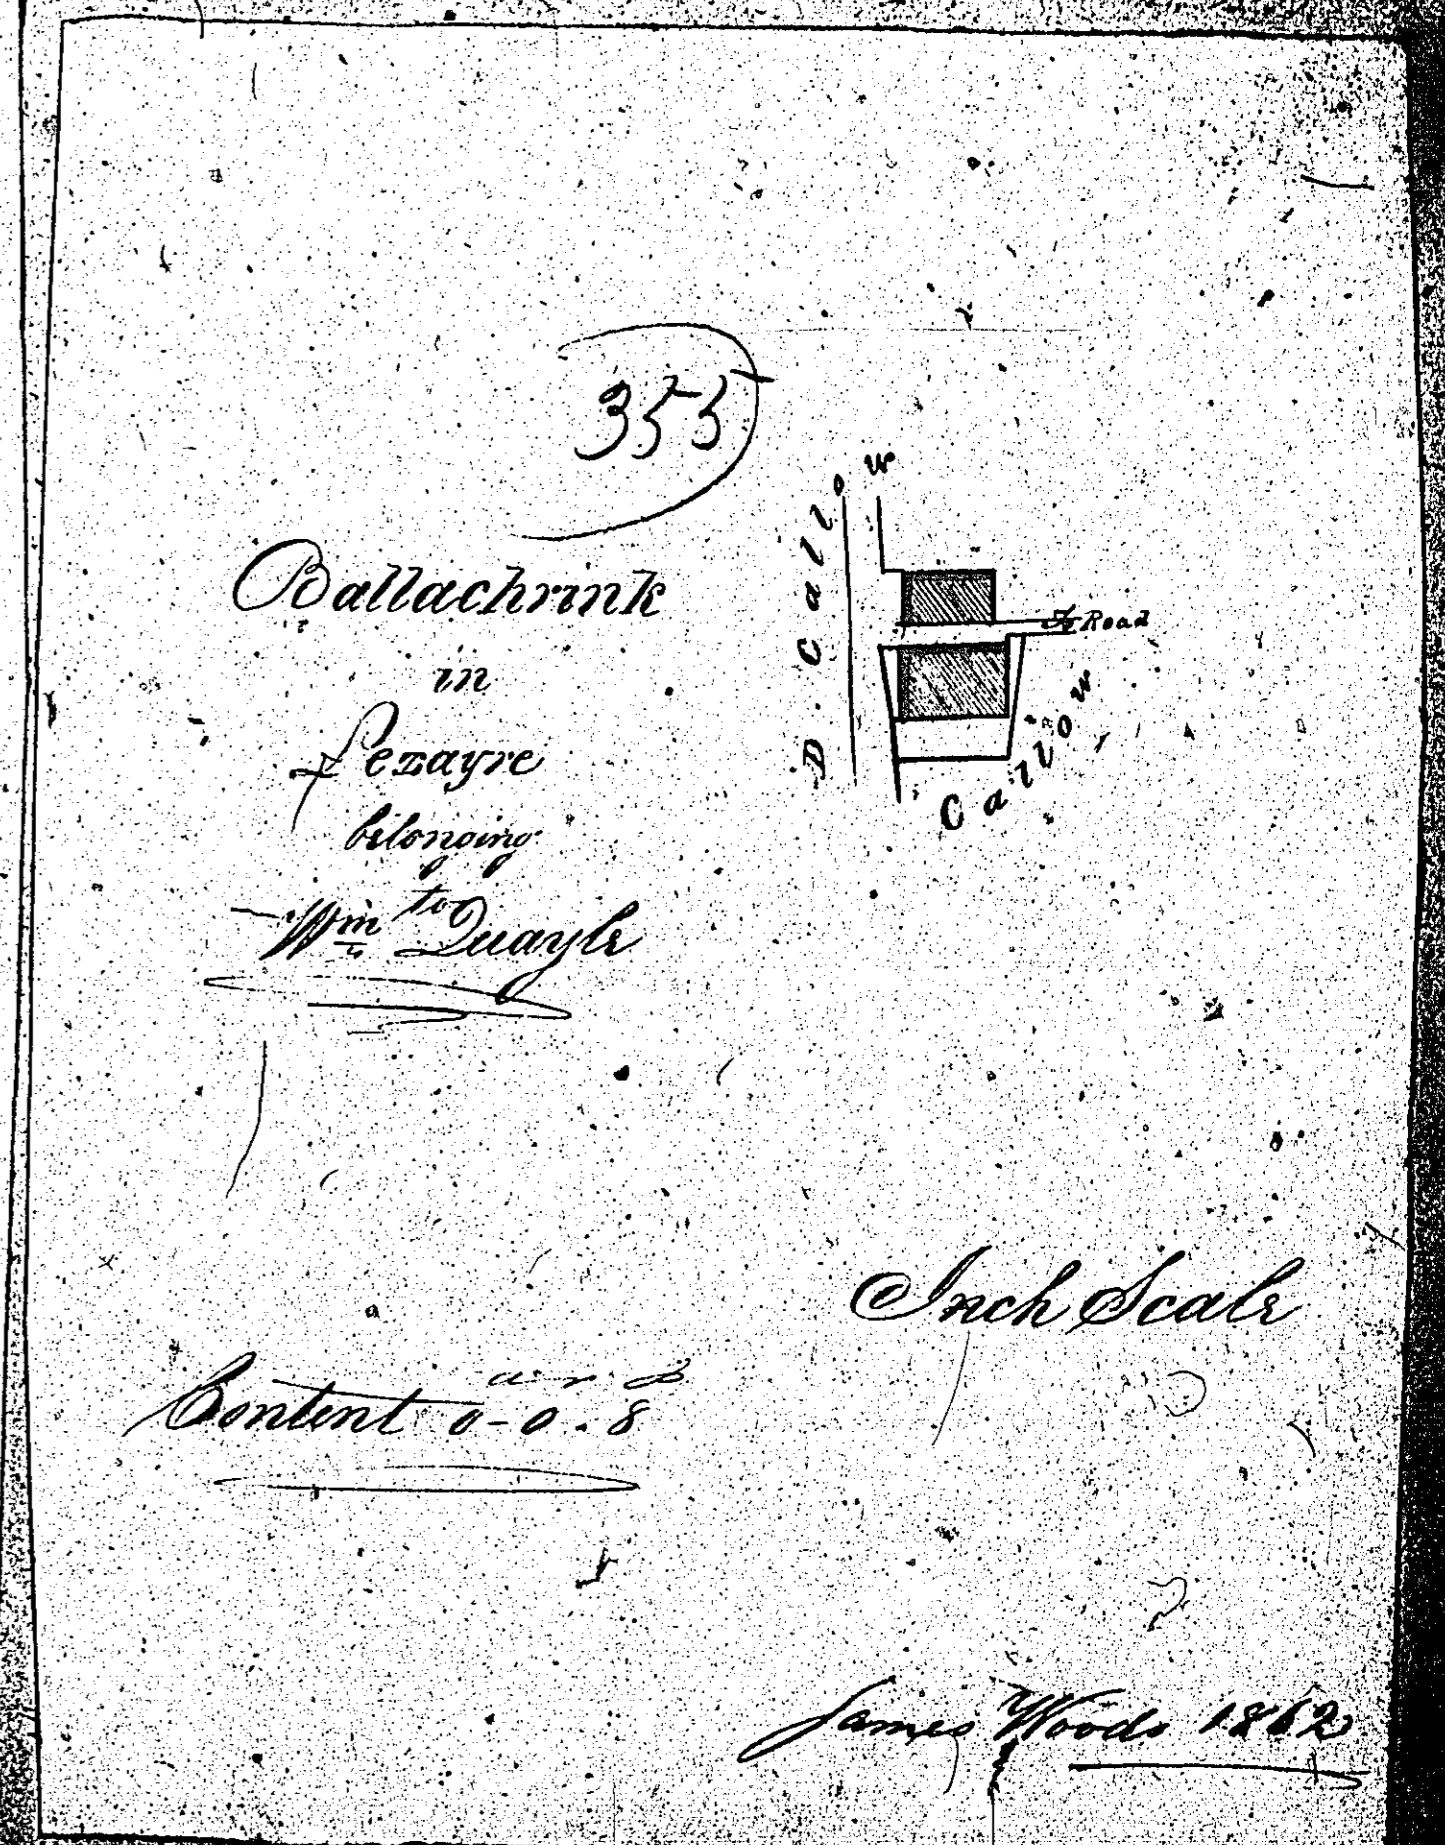 355
Ballachrink
in
Lezayre
belonging
to
Wm Quayle
D. Callow
To Road
Callow
Inch Scale
a r p
Content 0-0.8
James Woods 1862